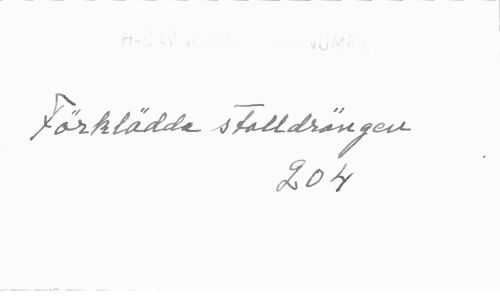 Förklädda stalldrängen
204